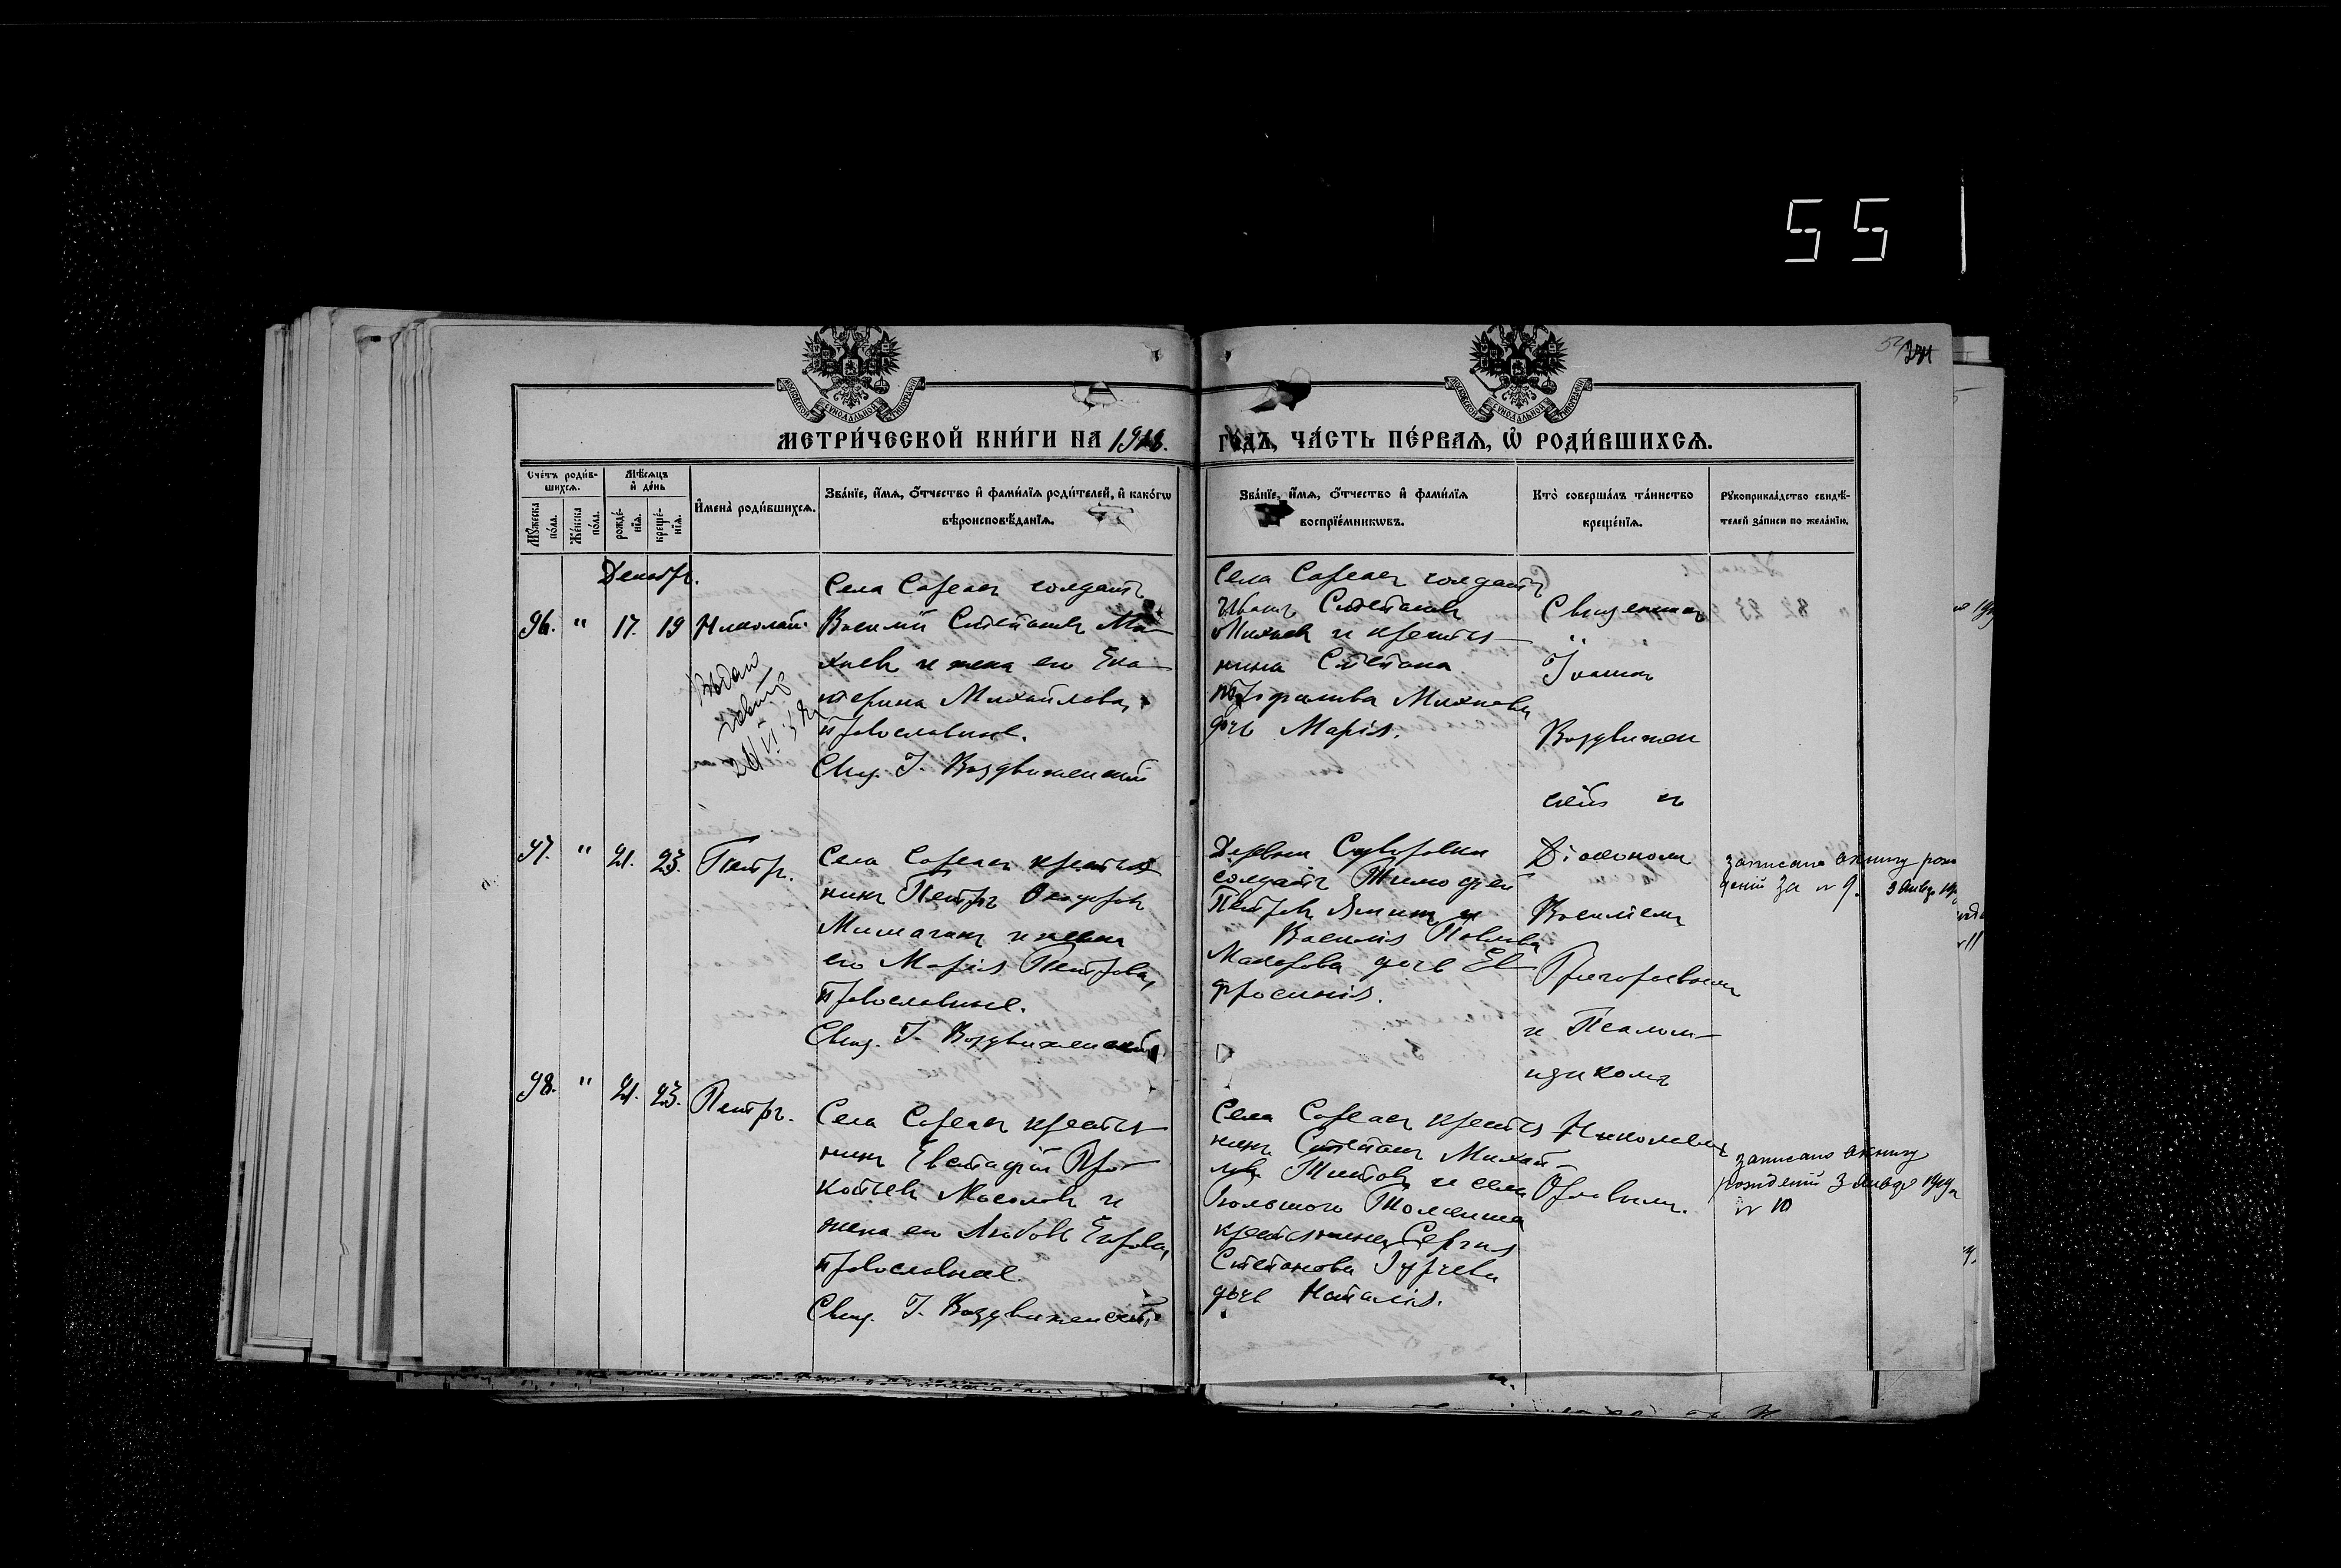 55
МЕТРИ́ЧЕСКОЙ КНИ́ГИ НА 1918.
ГО́ДЪ, ЧА́СТЬ ПЕ́РВАЯ, Ѡ҆ РОДИ́ВШИХСѦ.
Сче́тъ роди́в-
шихсѧ.
Мѣ́сѧцъ
и҆ де́нь
Мꙋ́жеска
по́ла.
Же́нска
по́ла.
рожде́-
нїѧ.
креще́-
нїѧ.
И҆мена̀ роди́вшихсѧ.
Зва́нїе, и҆́мѧ, ѻ҆́тчество и҆ фами́лїѧ роди́телей, и҆ како́гѡ
вѣроисповѣ́данїѧ.
Зва́нїе, и҆́мѧ, ѻ҆́тчество и҆ фами́лїѧ
воспрїе́мникѡвъ.
Кто̀ соверша́лъ та́инство
креще́нїѧ.
Рꙋкоприкла́дство свидѣ́-
телей за́писи по жела́нїю.
Декабр.
96. " 17. 19 Николай.
Села солдатъ
Василій Степановъ
и жена его Ека-
терина Михайлова,
православные.
Свящ. І. Воздвиженскій
Села солдатъ
Иванъ Степановъ
и крестья-
нина Степана
дочь Марія.
Священникъ
Іоаннъ
Воздвижен
скій съ
Діакономъ
Василіемъ
Григорьевымъ
и Псалом-
щикомъ
Николаемъ
Орловымъ.
97. " 21. 23. Петръ.
Села крестья
нинъ Петръ Ѳедоровъ
и жена
его Марія Петрова,
православные.
Свящ. І. Воздвиженскій
Деревни Суворовки
солдатъ Тимофей
Петровъ и
Василія Павлова
Макарова дочь Ев
фросинія.
записано в книгу рож
дений за № 9. 3 Янвр
98. " 21. 23. Петръ.
Села крестья
нинъ Евстафій Про-
копьевъ Масловъ и
жена его Любовь Егорова,
православные.
Свящ. І. Воздвиженскій
Села крестья
нинъ Степанъ Михай-
ловъ Титовъ и села
Большого
крестьянина Сергія
Степанова
дочь Наталія.
записано в книгу
рождений 3 Января 1919 г
№ 10